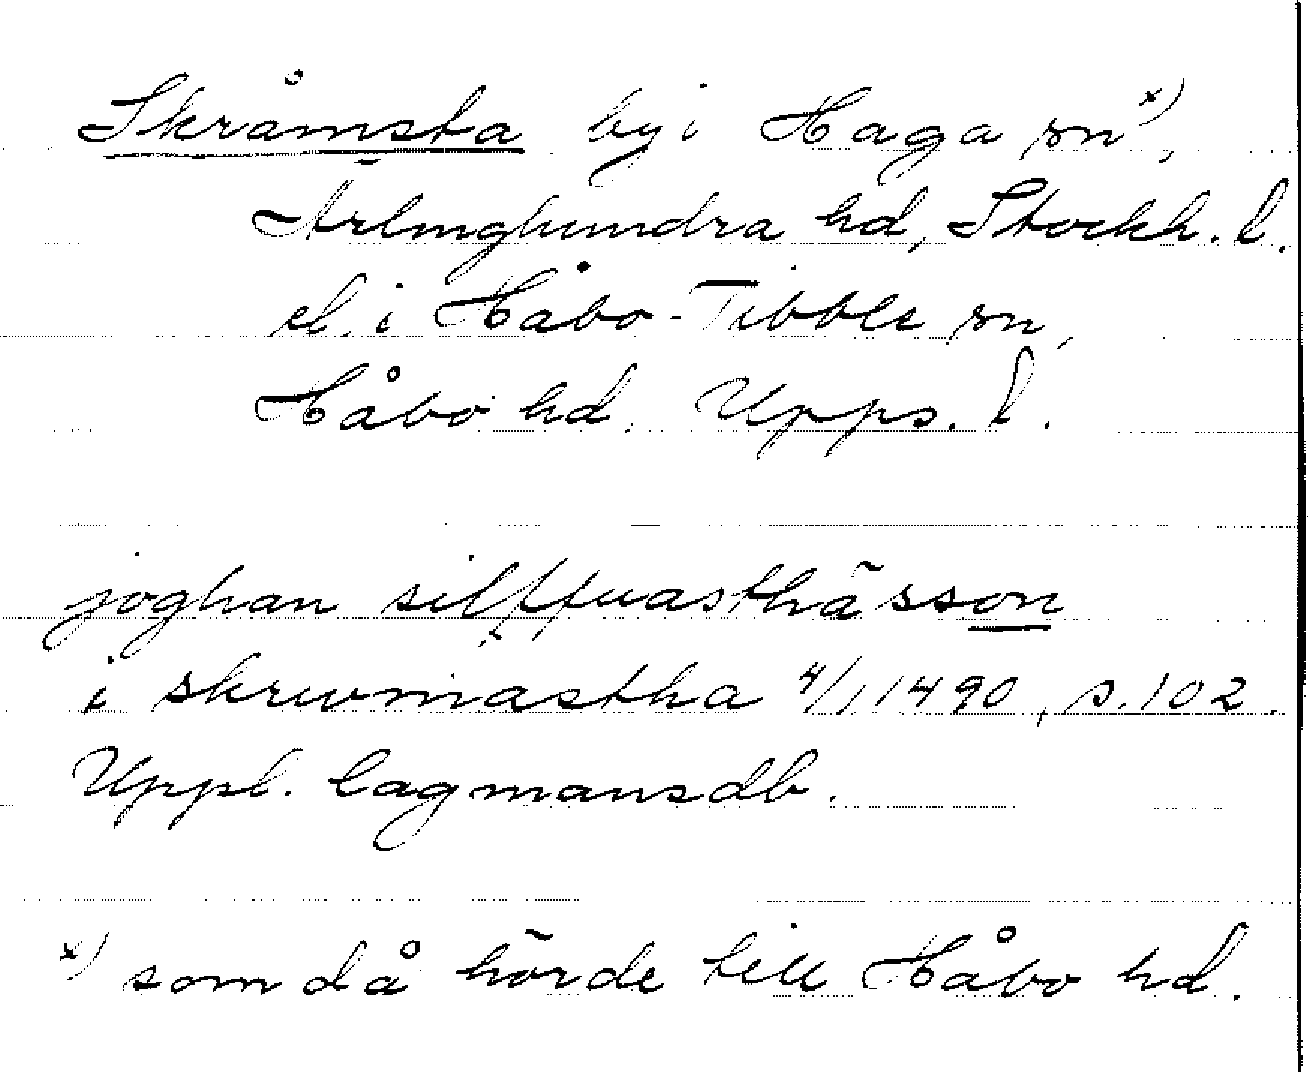 Skråmsta by i Haga sn x),
Ärlinghundra hd, Stockh. l.
el. i Håbo-Tibble sn,
Håbo hd. Upps. l.
joghan silffuasthässon
i skrwmastha 4/1 1490, s. 102.
Uppl. lagmansdb.
x) som då hörde till Håbo hd.